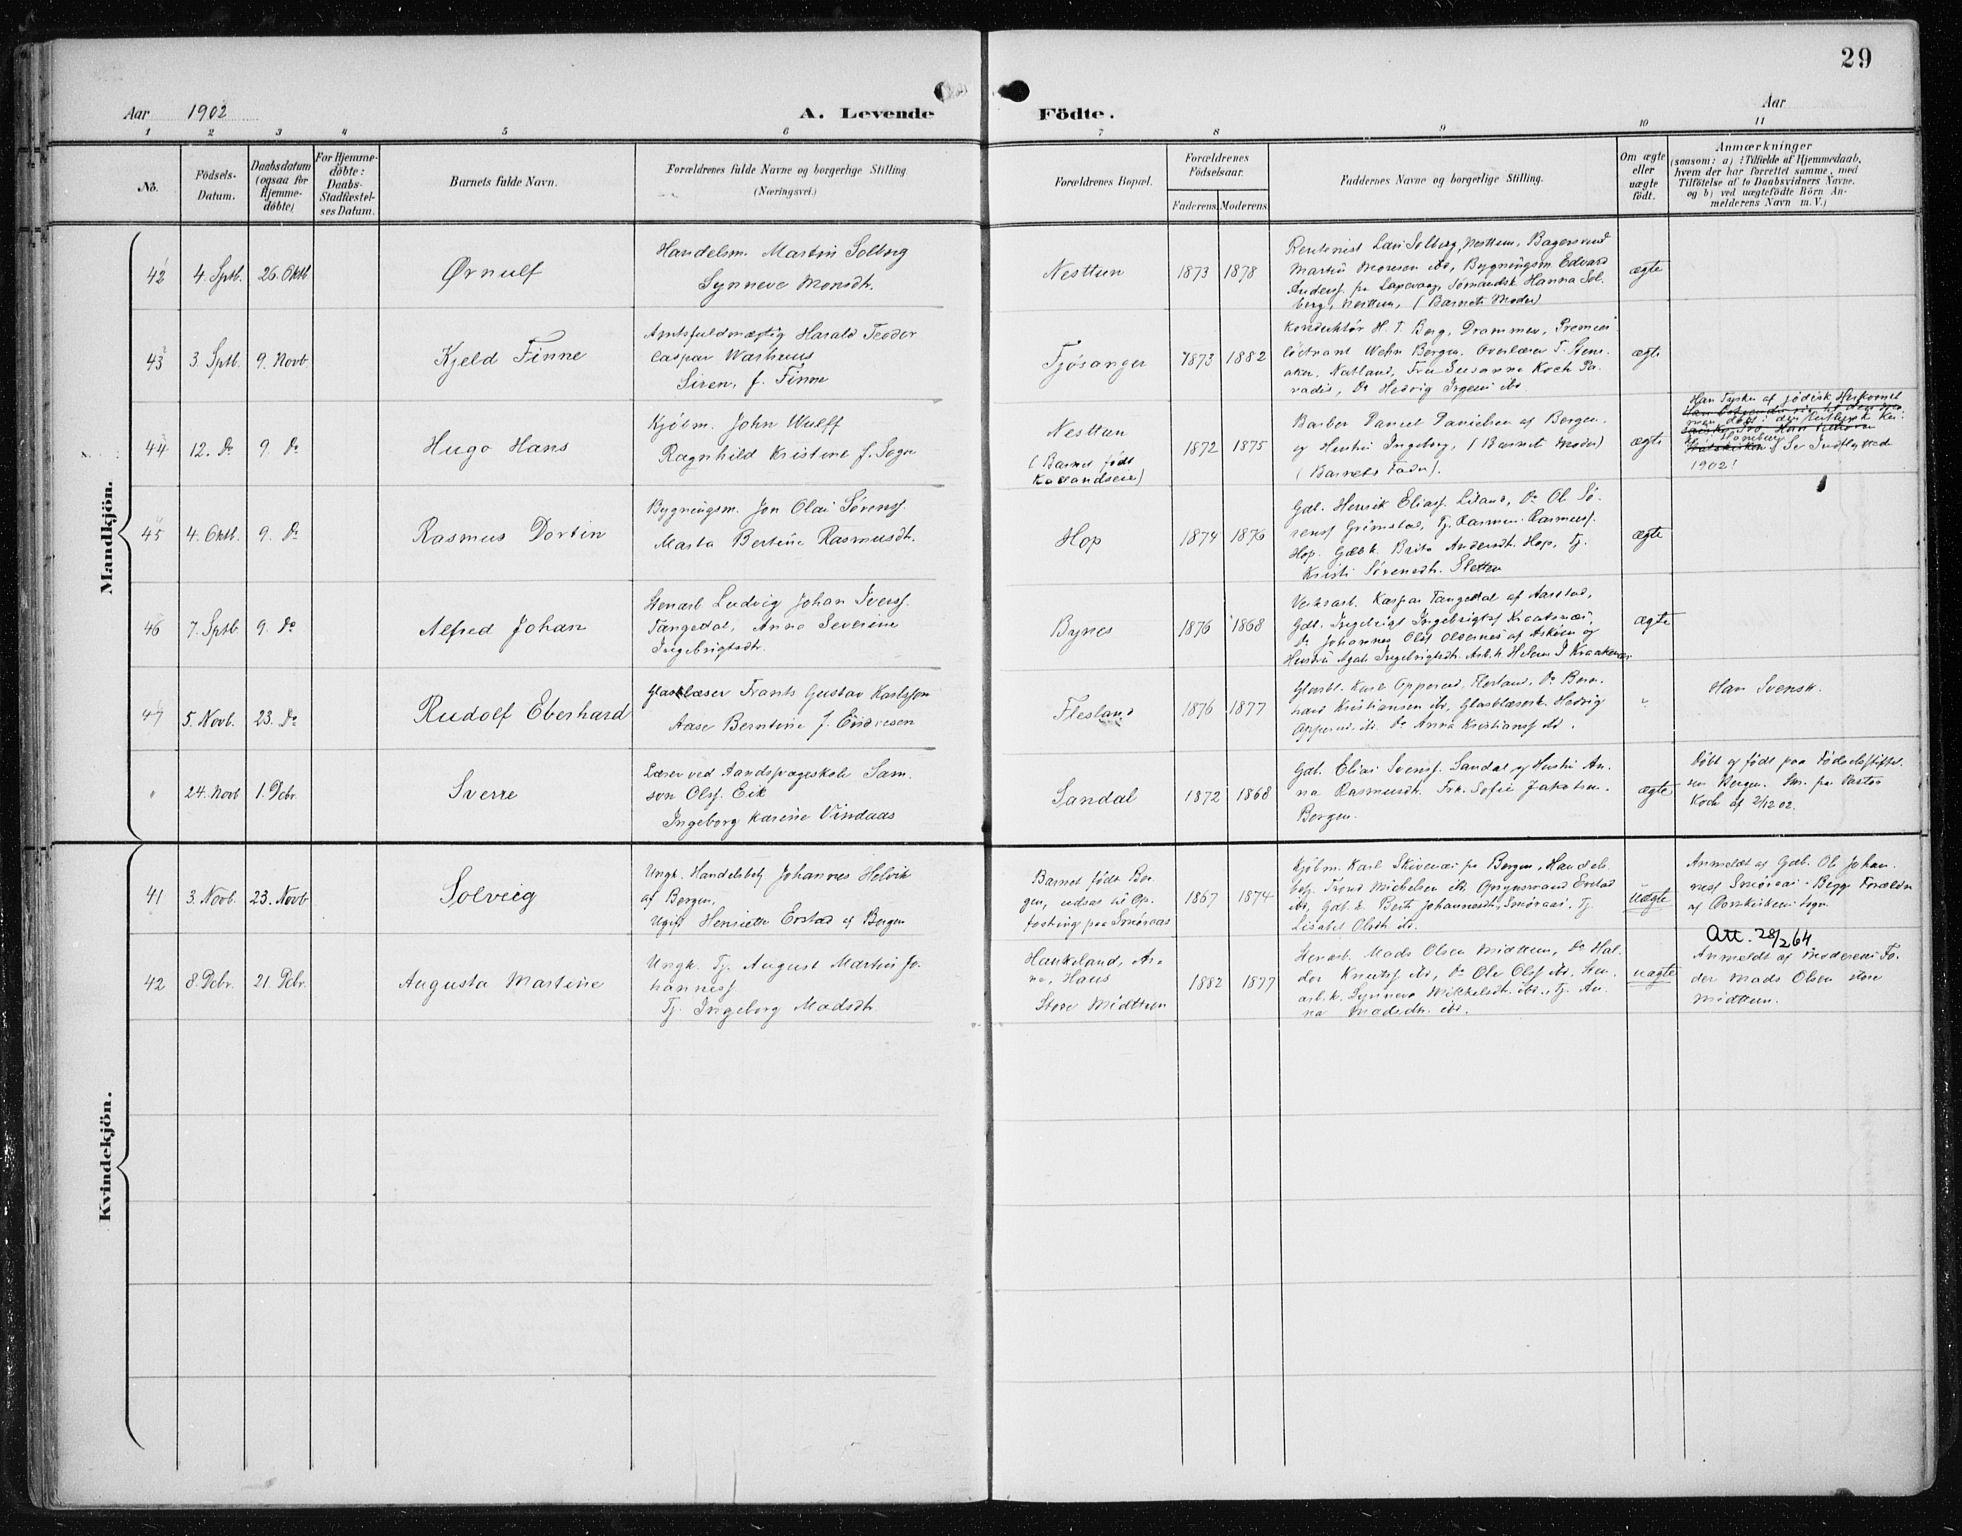 29
Aar 1902
A. Levende Födte.
Aar
1 2 3 4 5 6 7 8 9 10 11
No.
Födsels-Datum.
Daabsdatum (ogsaa for Hjemme-døbte)
For Hjemme-døbte: Daabs-Stadfæstel-ses Datum.
Barnets fulde Navn.
Forældrenes fulde Navne og borgerlige Stilling.
(Næringsvei.)
Forældrenes Bopæl.
Forældrenes Födselsaar.
Faderens. Moderens.
Faddernes Navne og borgerlige Stilling.
Om ægte eller uægte født.
Anmærkninger
(saasom: a) i Tilfælde af Hjemmedaab,
hvem der har forrettet samme, med
Tilföielse af to Daabsvidners Navne,
og b) ved uægtefødte Börn An-
melderens Navn m. V.)
Mandkjön.
42 4. Septb. 26. Oktb Ørnulf
Handelsm. Martin Solberg
Synneve Monsdt.
Nesttun 1873 1878
Solberg, Nesttun,
Edvard
Hanna Sol-
berg, Nesttun, (Barnets Moder)
ægte
43 3. Septb. 9. Novb. Kjeld Finne
Amtsfuldmægtig Harald Teodor
Caspar
Siren, f. Finne
Fjøsanger 1873 1882
Konduktør H. T. Berg, Drammen, Premier
Wehn Bergen. Overlærer T. Stens-
aker, Natland, Fru Susanna Koch Pa-
radis, Do Hedvig Irgens ibd
ægte
44 12. Do 9. Do Hugo Hans
Kjøbm. John Wulff
Ragnhild Kristine f.
Nesttun
(Barnet født
1872 1875
Barber Daniel Danielsen af Bergen
og Hustru Ingeborg, (Barnets Moder)
(Barnets Fader).
ægte
Han Tysker af jødisk Herkomst
1902!
45 4. Oktb. 9. Do Rasmus Dortin
Bygningsm. Jon Olai Sørens.
Marta Bertine Rasmusdt.
Hop 1874 1876
Gdb. Henrik Elias. Liland, Do Ol. Sø-
rens. Grimstad, Tj. Rasmus Rasmus.
Hop. Gdb.k. Brita Andersdt. Hop, Tj.
Kristi Sørensdt. Sletten
ægte
46 7. Septb. 9. Do Alfred Johan
Stenarb. Ludvig Johan Ivers.
Tangedal, Anna Severine
Ingebrigtsdt.
Bynes 1876 1868
Verksarb. Kaspar Tangedal af Aarstad,
Gdb. Ingebrigt Ingebrigts.
Do Johannes Ols. af Askøen og
Hustru Agate Ingebrigtsdt. Arb.k Helene I Kraakenæs
ægte
47 5. Novb. 23. Do Rudolf Eberhard
Glasblæser Frants Gustav Karlsson
Aase Berntine f. Endresen
Flesland 1876 1877
Glasbl. Karl Opperud, Flesland, Do Bern-
hard Kristiansen ibd, Glasblæserk. Hedvig
Opperud ibd. Do Anna Kristians. ibd.
"
Han Svensk.
" 24. Novb 1. Debr. Sverre
Lærer ved Aandssvageskole Sam-
son Ols. Eik
Ingeborg Karine Vindaas
Sandal 1872 1868
Gdb. Elias Svens. Sandal og Hustru An-
na Rasmusdt. Frk. Sofie Jakobsen.
Bergen.
ægte
Døbt og født paa Fødselsstiftel-
sen Bergen. Sm. fra Pastor
Koch af 2/12 02.
Kvindekjön.
41 3. Novb. 23. Novb Solveig
Ungk. Handelsbetj Johannes Helvik
af Bergen,
Ugift Henriette Erstad af Bergen
Barnet født Ber-
gen, udsat til Op-
fostring paa Smøraas
1867 1874
Kjøbm. Karl Skivenes fra Bergen, Handels-
betj. Trond Michelsen ibd, Opsynsmand Erstad
ibd, Gdb.k. Berte Johannesdt. Smøraas, Tj.
Lisabet Olsdt. ibd.
Uægte
Anmeldt af Gdb. Ole Johan-
nes. Smøraas. Begge Forældre
af Korskirkens Sogn
Att. 28/2 64
42 8. Debr. 21. Debr. Augusta Martine
Ungk. Tj. August Martin Jo-
hannes.
Tj. Ingeborg Madsdt.
Haukeland, Ar-
na, Haus
Store Midttun
1882 1877
Stenarb. Mads Olsen Midttun, Do Hal-
dor Knuts. ibd, Do Ole Ols. ibd, Sten-
arb.k. Synneva Mikkelsdt. ibd., Tj. An-
na Madsdt. ibd.
uægte
Anmeldt af Moderens Fa-
der Mads Olsen store
Midttun.